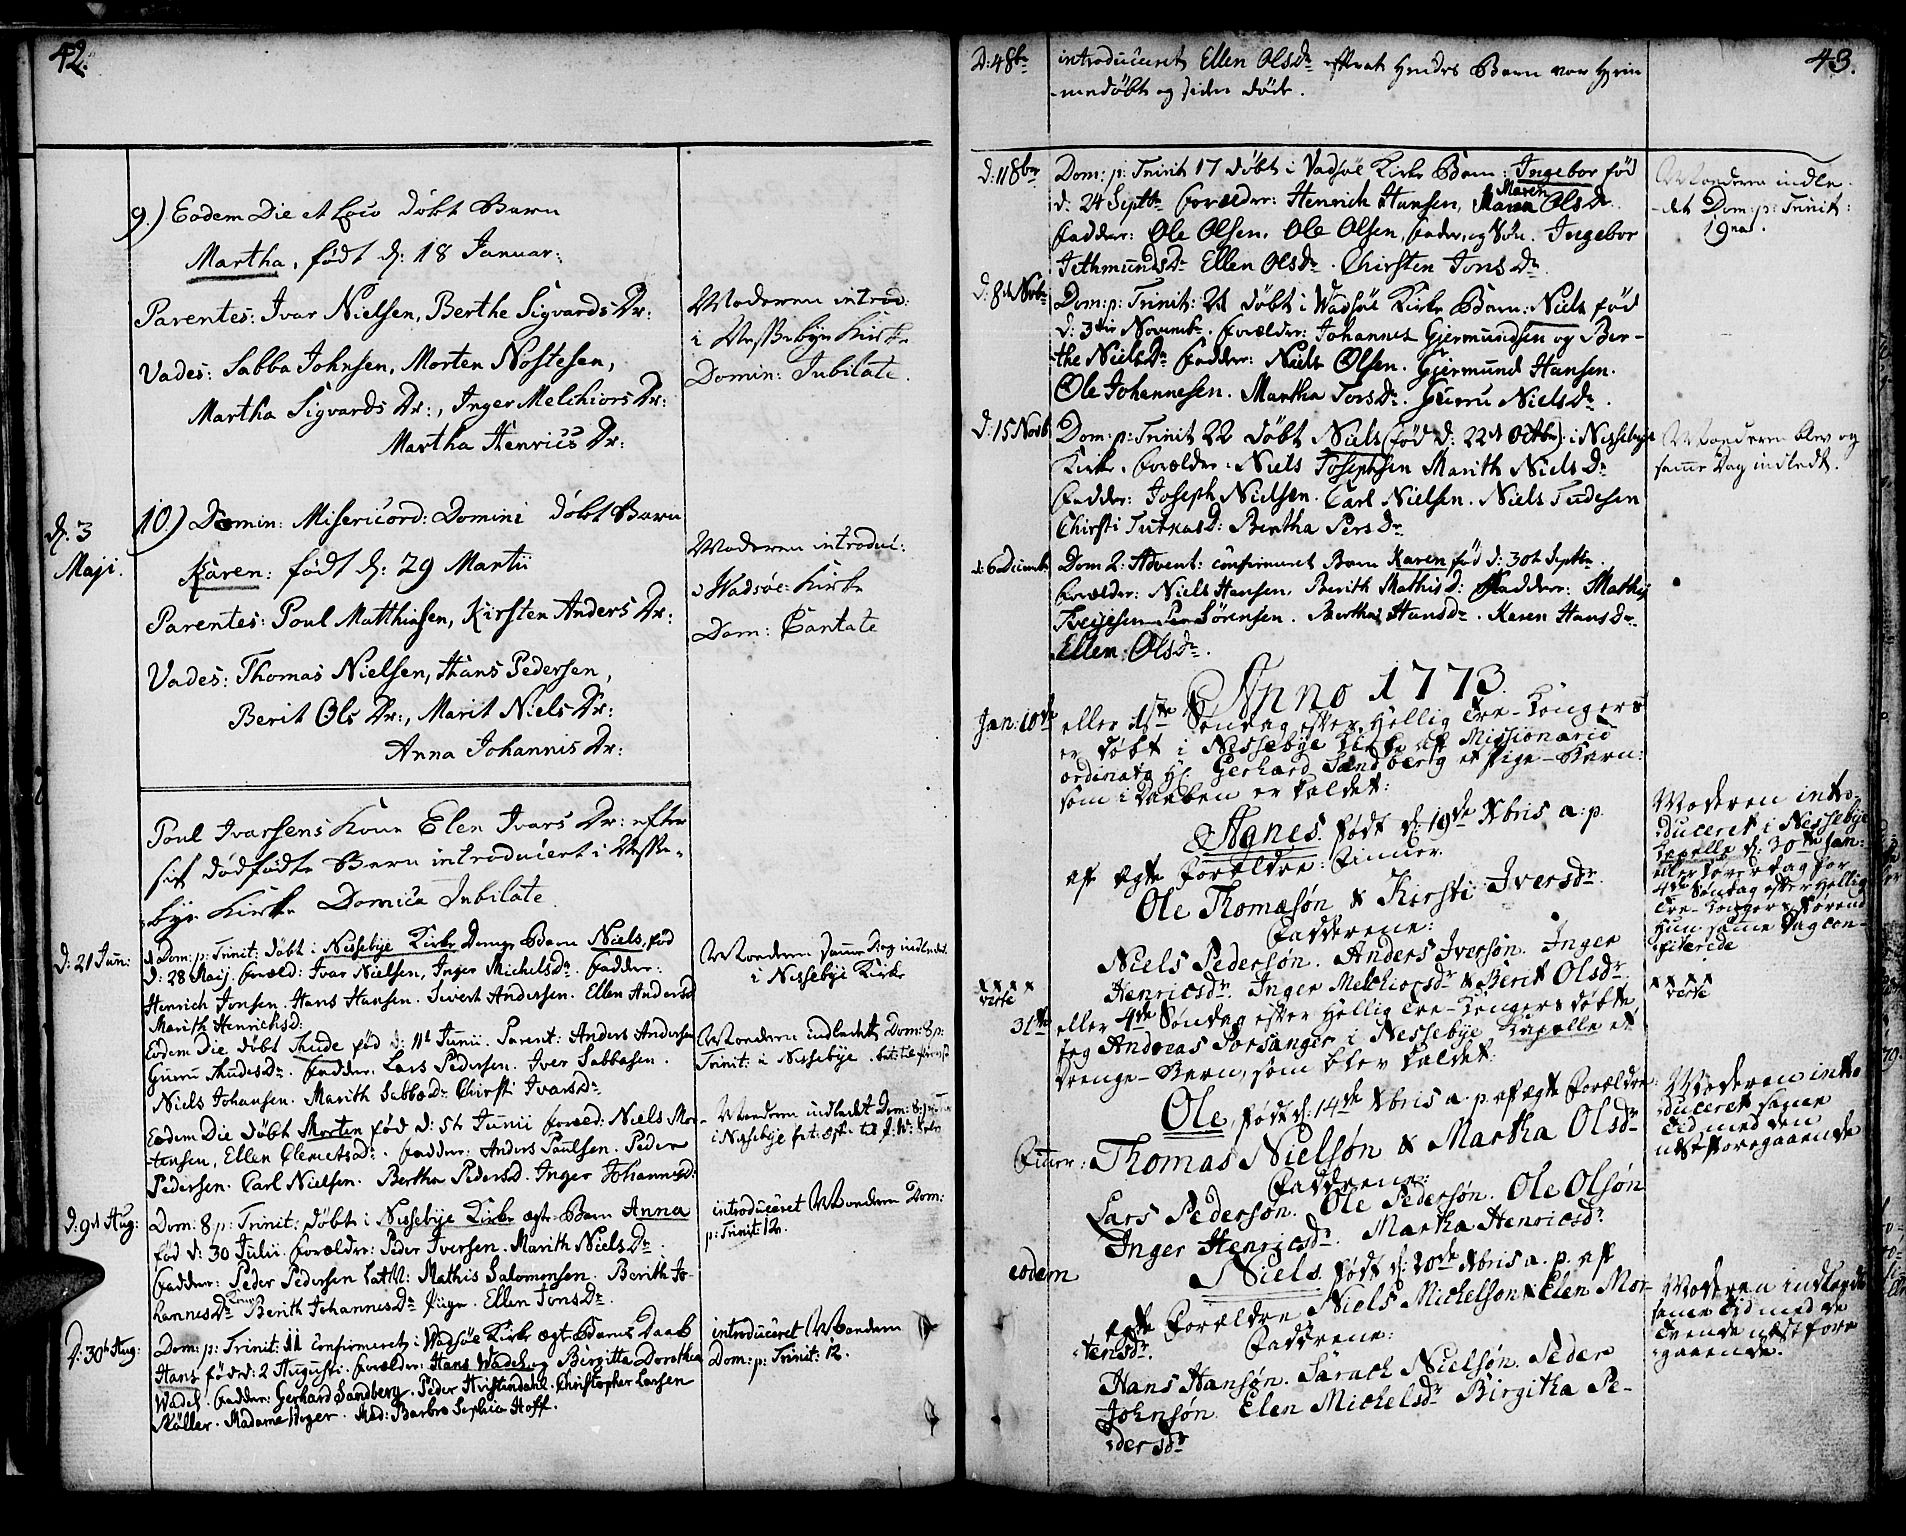 42.
9.) Eodem Die et Loco døbt Barn
Martha, født d: 18 Januar:
Parentes: Ivar Nielsen, Berthe Sigvards Dr:
Vades: Sabba Johnsen, Morten Nostesen,
Martha Sigvards Dr:, Inger Melchiors Dr:
Martha Henrics Dr:
Moderen introd:
i Nessebye Kirke
Domin: Jubilate.
d. 3
Maji.
10.) Domin: Misericord: Domini døbt Barn
Karen: født d: 29 Martii
Parentes: Poul Matthiasen, Kirsten Anders Dr:
Vades: Thomas Nielsen, Hans Pedersen,
Berit Ols Dr:, Marit Niels Dr:
Anna Johannis Dr:
Moderen introdui:
i Wadsöe Kirke
Dom: Cantate
Poul Ivarsens Kone Elen Ivars Dr: efter
sit dødfødte Barn introduceret i Nesse-
bye Kirke Domica Jubilate.
d: 21 Jun:
d Dom: p: Trinit: døbt i Nessebye Kirke Drenge Barn Niels, fød
d: 28 Maij. Foræld: Ivar Nielsen, Inger Michelsdr. Fadder:
Henrich Jonsen. Hans Hansen. Sivert Andersen. Ellen Andersd
Marith Henrichsd:
Moderen samme Dag indledet
i Nessebye Kirke
Eodem Die døbt Thude fød d: 11t Junii. Parent: Anders Andersen
Guru Thudesdr. Fadder: Lars Pedersen. Iver Sabbasen.
Niels Johansen. Marith Sabbadr. Chirsti Ivarsdr.
Moderen indledet Dom: 8 p:
Trinit: i Nessebye.
Eodem Die døbt Morten fød d: 5t Junii foræld: Niels Mor-
tensen, Ellen Clemetsdr. Fadder: Anders Paulsen. Peder
Pedersen. Carl Nielsen. Bertha Pedersd. Inger Johannesd:
Moderen indledet Dom: 8 p:
i Nessebye
d: 9t Aug:
Dom: 8 p: Trinit: døbt i Nessebye Kirke ægte Barn Anna
fød d: 30 Julii. Forælder: Peder Iversen. Marith Niels Dr.
Fadder: Peder Pedersen Latll: Mathis Salomonsen. Berith Jo-
hannes Dr Kone Berith Johannes Dr Piige. Ellen Jons Dr.
introduceret Moderen Dom:
p: Trinit: 12.
d: 30t Aug:
Dom: p: Trinit: 11 Confirmeret i Wadsøe Kirke ægte Barns Daab
Hans fød d: 2 Augusti. forælder: Hans Wadel og Birgitta Dorothea
Wadel. Fadder: Gerhard Sandberg. Peder Hvistendahl. Christopher Larsen
Møller. Madame Heger. Mad: Barbro Sophia Hoff.
introduceret Moderen
Dom: p: Trinit: 12.
43.
D: 4 8br
introduceret Ellen Olsdr efterat hendes Barn var hjem-
medøbt og siden død.
d: 11 8br
Dom: p: Trinit 17 døbt i Vadsøe Kirke Barn: Ingebor fød
d. 24 Septbr forælder: Henrich Hansen, Maren Ols Dr.
Fadder: Ole Olsen, Ole Olsen, Fader, og Søn. Ingebor
Jethmunds Dr Ellen Ols Dr. Chirsten Jons Dr.
Moderen indle-
det Dom: p: Trinit:
19na.
d: 8t Novbr
Dom: p: Trinit: 21 døbt i Wadsøe Kirke Barn: Niels fød
d: 3die Novembr. forælder: Johannes Gjermundsen og Ber-
the Niels Dr Fadder: Niels Olsen. Gjermund Hansen.
Ole Johannesen. Martha Tors Dr. Guru Niels Dr.
d: 15 Novb
Dom: p: Trinit 22 døbt Niels (fød d: 22d Octbr) i Nessebye
Kirke. Forælder: Niels Josephsen Marith Niels Dr
Fadder: Joseph Nielsen. Carl Nielsen. Niels Tudesen
Chirsti Tudas D: Bertha Pers Dr
Moderen blev og
samme Dag indledt.
d: 6 Decembr
Dom 2: Advent: confirmeret Barn Karen, fød d: 30t Septbr.
Forælder: Niels Hansen. Berith Mathis D: Fadder: Mathis
Sørensen. Bertha Hansdr. Karen Hans Dr
Ellen Ols Dr.
Anno 1773.
Jan: 10de
eller 1ste Søndag efter Hellig Tre-Kongers
er døbt i Nessebye Kirke af Missionario
ordinato Hr Gerhard Sandberg et Pige-Barn:
som i Daaben er kaldet:
Agnes. født d: 19de Xbris a. p.
af ægte Forældre: Finner.
Ole Thomasøn & Kirsti Iversdr.
Fadderene:
Niels Pedersøn. Anders Iversøn. Inger
Henricsdr. Inger Melchiorsdr & Berit Olsdr.
Moderen intro-
duceret i Nessebye
Kapelle d: 30te Jan:
eller Løverdag for
4de Søndag efter Hellig
Tre-Kongers, hvorend
hun same Dag con-
fiterede
x x x x
verte
x x x x
verte
31te
eller 4de Søndag efter Hellig Tre-Kongers døbte
jeg Andreas Porsanger i Nessebye Kapelle et
Drenge-Barn, som blev kaldet:
Ole, født d: 14de Xbris a. p. af ægte Forældre:
Finner: Thomas Nielsøn & Martha Olsdr
Fadderene:
Lars Pedersøn. Ole Pedersøn. Ole Olsøn
Inger Henricsdr. Martha Henricsdr.
Moderen intro
duceret same
Tid med den
næst foregaaende
eodem
Niels. født d: 20de Xbris a. p. af
ægte Forældre Niels Michelsøn & Elen Mor-
tensdr.
Fadderene:
Hans Hansøn. Sarach Nielsøn. Peder
Johnsøn. Elen Michelsdr Birgitha Pe-
dersdr
Moderen indleedet
same Tid med de
tvende næst fore
gaaende.